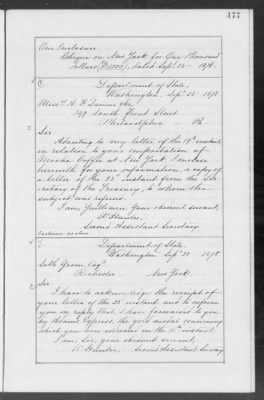 477
One Enclosure
Cheque on New York for One Thousand
Dollars ($1000), dated Sept. 28 1878.
Department of State,
Washington Sept. 28 1878
249 South Front Street
Philadelphia Pa
Sir
Adverting to my letter of the 19th instant
in relation to your importation of
Mocha Coffee at New York, I enclose
herewith for your information, a copy of
a letter of the 25th instant from the Sec-
retary of the Treasury, to whom the
subject was referred.
I am, Gentlemen, Your obedient servant,
Second Assistant Secretary
Department of State,
Washington Sept. 28 1878
Seth Green, Esqr
Rochester New York.
Sir.
I have to acknowledge the receipt of
your letter of the 23d instant, and to inform
you in reply that I have forwarded to you
by Adams Express, the gold medal concerning
which you were advised on the instant.
I am, Sir, your obedient servant,
Second Assistant Secretary